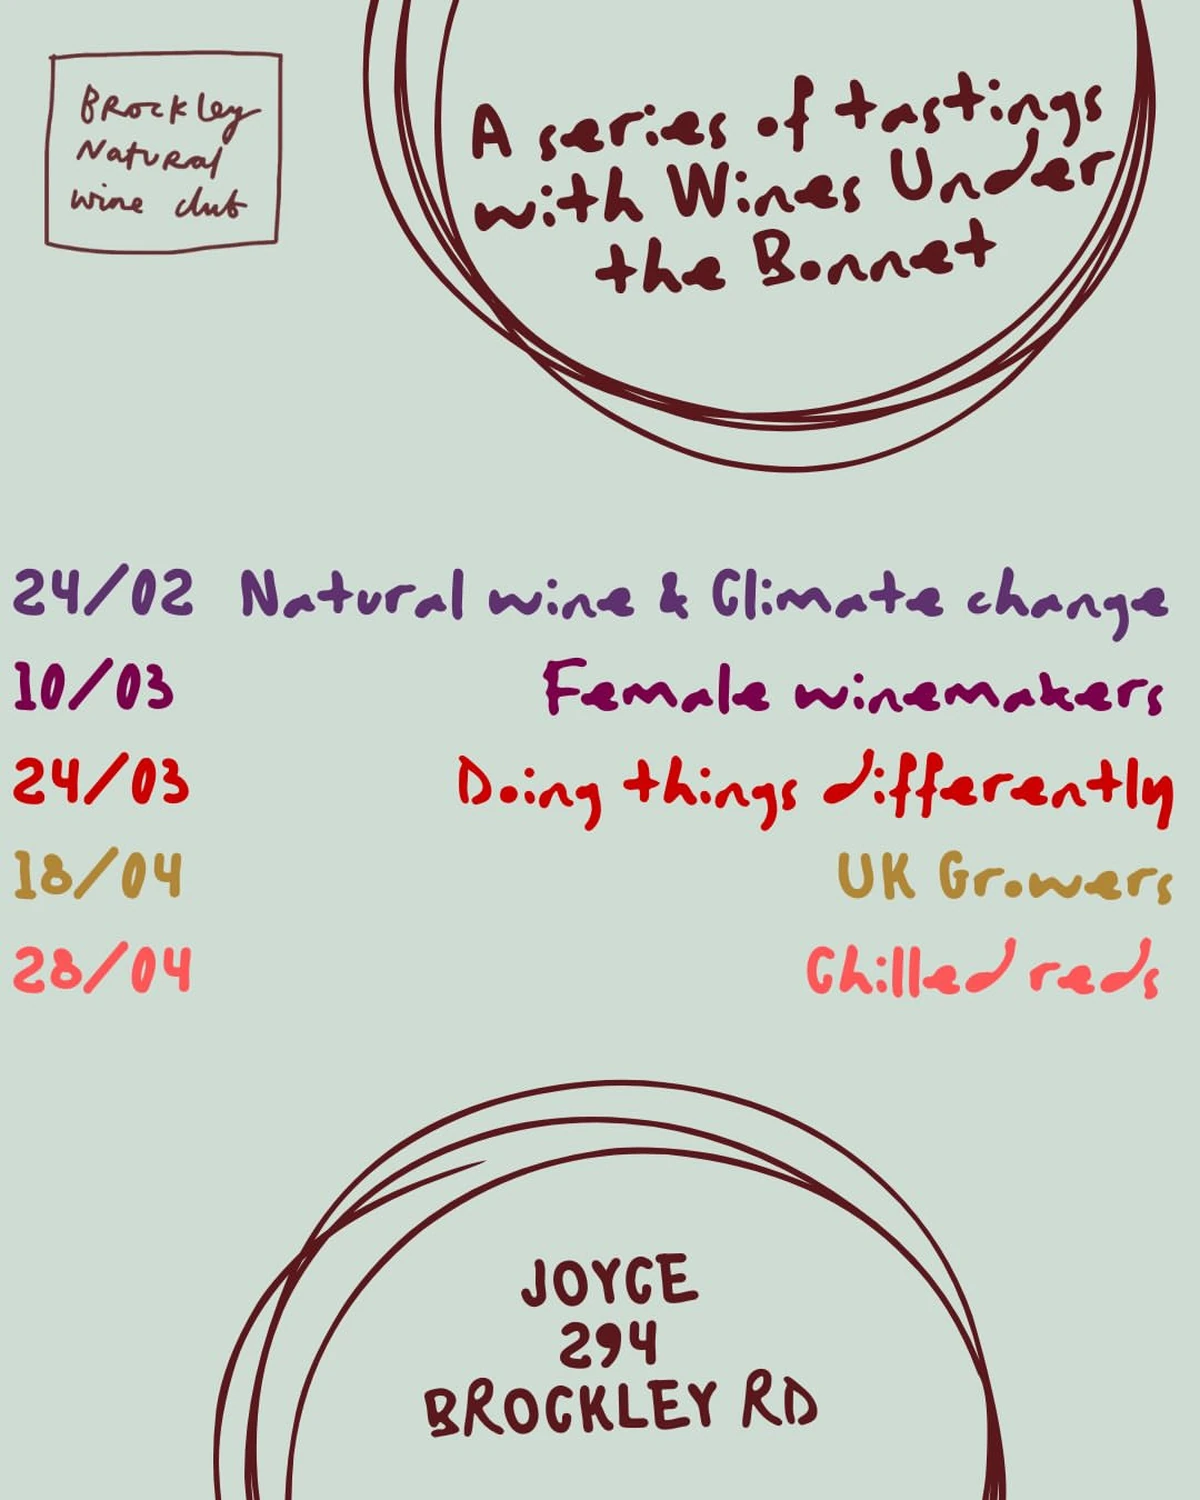 Brockley
Natural
wine club
A series of tastings
with Wines Under
the Bonnet
24/02 Natural wine & Climate change
10/03 Female winemakers
24/03 Doing things differently
18/04 UK Growers
28/04 Chilled reds
JOYCE
294
BROCKLEY RD